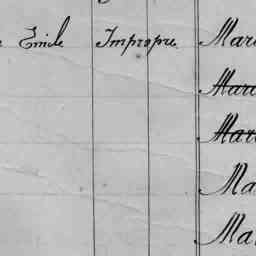 Emile Impropre Mar
Mar
Mar
Ma
Ma